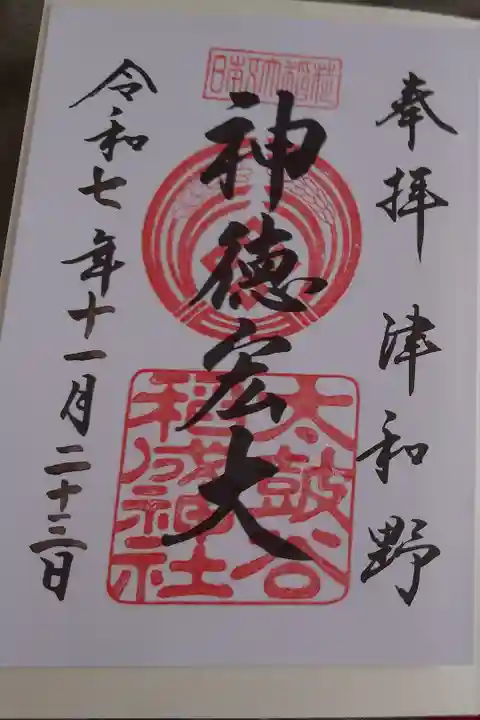 奉拝 津和野
日本五大稲荷
神徳宏大
太皷谷
稲成神社
令和七年十一月二十三日